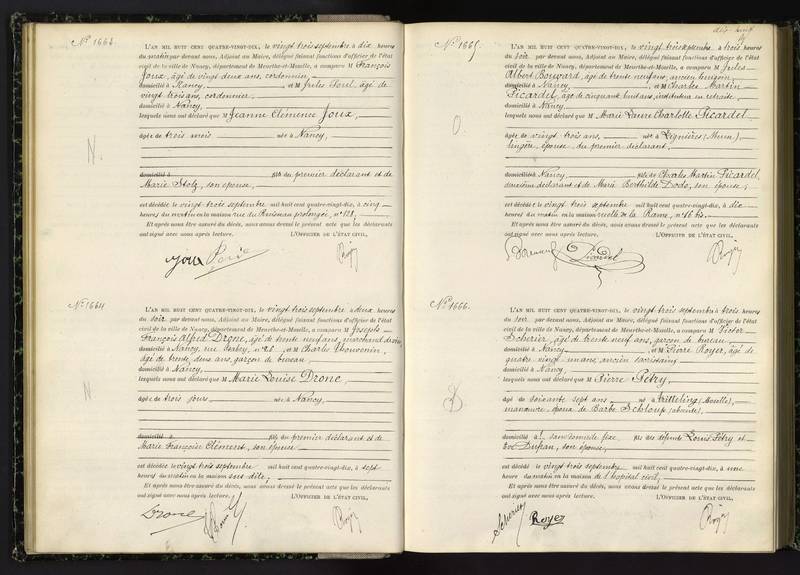 N.° 1663.
L'AN MIL HUIT CENT QUATRE-VINGT-DIX, le vingt trois septembre à dix heures
du matin par devant nous, Adjoint au Maire, délégué faisant fonctions d'officier de l'état
civil de la ville de Nancy, département de Meurthe-et-Moselle, a comparu M François
Joux, âgé de vingt deux ans, cordonnier,
domicilié à Nancy, et M Jules âgé de
vingt trois ans, cordonnier,
domicilié à Nancy,
lesquels nous ont déclaré que M Jeanne Clémence Joux,
N.
âgée de trois mois née à Nancy,
domicilié à fille du premier déclarant et de
Marie Stolz, son épouse,
est décédée le vingt trois septembre mil huit cent quatre-vingt-dix, à cinq
heures du matin en la maison rue du Ruisseau prolongée, n° 128,
Et après nous être assuré du décès, nous avons dressé le présent acte que les déclarants
ont signé avec nous après lecture. L'OFFICIER DE L'ÉTAT CIVIL,
Joux
N.° 1664
L'AN MIL HUIT CENT QUATRE-VINGT-DIX, le vingt trois septembre à deux heures
du soir par devant nous, Adjoint au Maire, délégué faisant fonctions d'officier de l'état
civil de la ville de Nancy, département de Meurthe-et-Moselle, a comparu M Joseph
François Alfred Drone, âgé de trente neuf ans, marchand de
domicilié à Nancy, rue n° 25 et M Charles Thouvenin,
âgé de trente deux ans, garçon de bureau
domicilié à Nancy,
lesquels nous ont déclaré que M Marie Louise Drone,
N
âgée de trois jours née à Nancy,
domicilié à fille du premier déclarant et de
Marie Françoise Clément, son épouse
est décédée le vingt trois septembre mil huit cent quatre-vingt-dix, à sept
heures du matin en la maison sus dite,
Et après nous être assuré du décès, nous avons dressé le présent acte que les déclarants
ont signé avec nous après lecture. L'OFFICIER DE L'ÉTAT CIVIL,
Drone
dix-neuf
N.° 1665
L'AN MIL HUIT CENT QUATRE-VINGT-DIX, le vingt trois septembre à trois heures
du soir par devant nous, Adjoint au Maire, délégué faisant fonctions d'officier de l'état
civil de la ville de Nancy, département de Meurthe-et-Moselle, a comparu M Jules
Albert âgé de trente neuf ans, ancien lingier,
domicilié à Nancy, et M Charles Martin
Picardel, âgé de cinquante huit ans, instituteur en retraite,
domicilié à Nancy
lesquels nous ont déclaré que M Marie Laure Charlotte Picardel
O.
âgée de vingt trois ans, née à Lignières (Meuse),
lingère, épouse du premier déclarant,
domiciliée à Nancy fille de Charles Martin Picardel,
deuxième déclarant et de Marie Berthilde Dodo, son épouse,
est décédée le vingt trois septembre mil huit cent quatre-vingt-dix, à dix
heures du matin en la maison ruelle de la Rame, n° 16 bis
Et après nous être assuré du décès, nous avons dressé le présent acte que les déclarants
ont signé avec nous après lecture. L'OFFICIER DE L'ÉTAT CIVIL,
Picardel
N.° 1666.
L'AN MIL HUIT CENT QUATRE-VINGT-DIX, le vingt trois septembre à trois heures
du soir par devant nous, Adjoint au Maire, délégué faisant fonctions d'officier de l'état
civil de la ville de Nancy, département de Meurthe-et-Moselle, a comparu M Victor
Scherier, âgé de trente neuf ans, garçon de bureau
domicilié à Nancy et M Pierre Royer, âgé de
quatre vingt un ans, ancien sacristain
domicilié à Nancy,
lesquels nous ont déclaré que M Pierre Pétry,
âgé de soixante sept ans né à Tritteling (Moselle),
manœuvre, époux de Barbe Schloup (absente),
domicilié à sans domicile fixe, fils des défunts Louis Pétry et
Eve son épouse,
est décédé le vingt trois septembre mil huit cent quatre-vingt-dix, à une
heure du matin en la maison de l'hôpital civil,
Et après nous être assuré du décès, nous avons dressé le présent acte que les déclarants
ont signé avec nous après lecture. L'OFFICIER DE L'ÉTAT CIVIL,
Scherier Royer